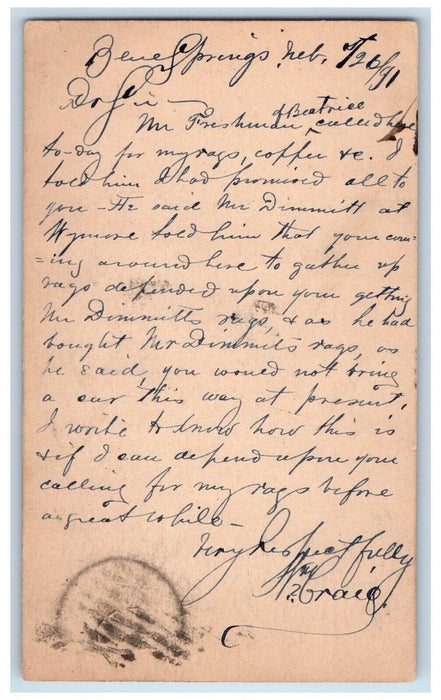 Blue Springs, Neb. 7/26/91
Dr Sir –
Mr Freshman of Beatrice called here
to-day for my rags, copper &c. I
told him I had promised all to
you – He said Mr Dimmitt at
Wymore told him that your com-
=ing around here to gather up
rags depended upon your getting
Mr Dimmitts rags, & as he had
bought Mr Dimmits rags, as
he said, you would not bring
a car this way at present.
I write to know how this is
& if I can depend upon your
calling for my rags before
a great while –
Very Respectfully
Wm Craig.